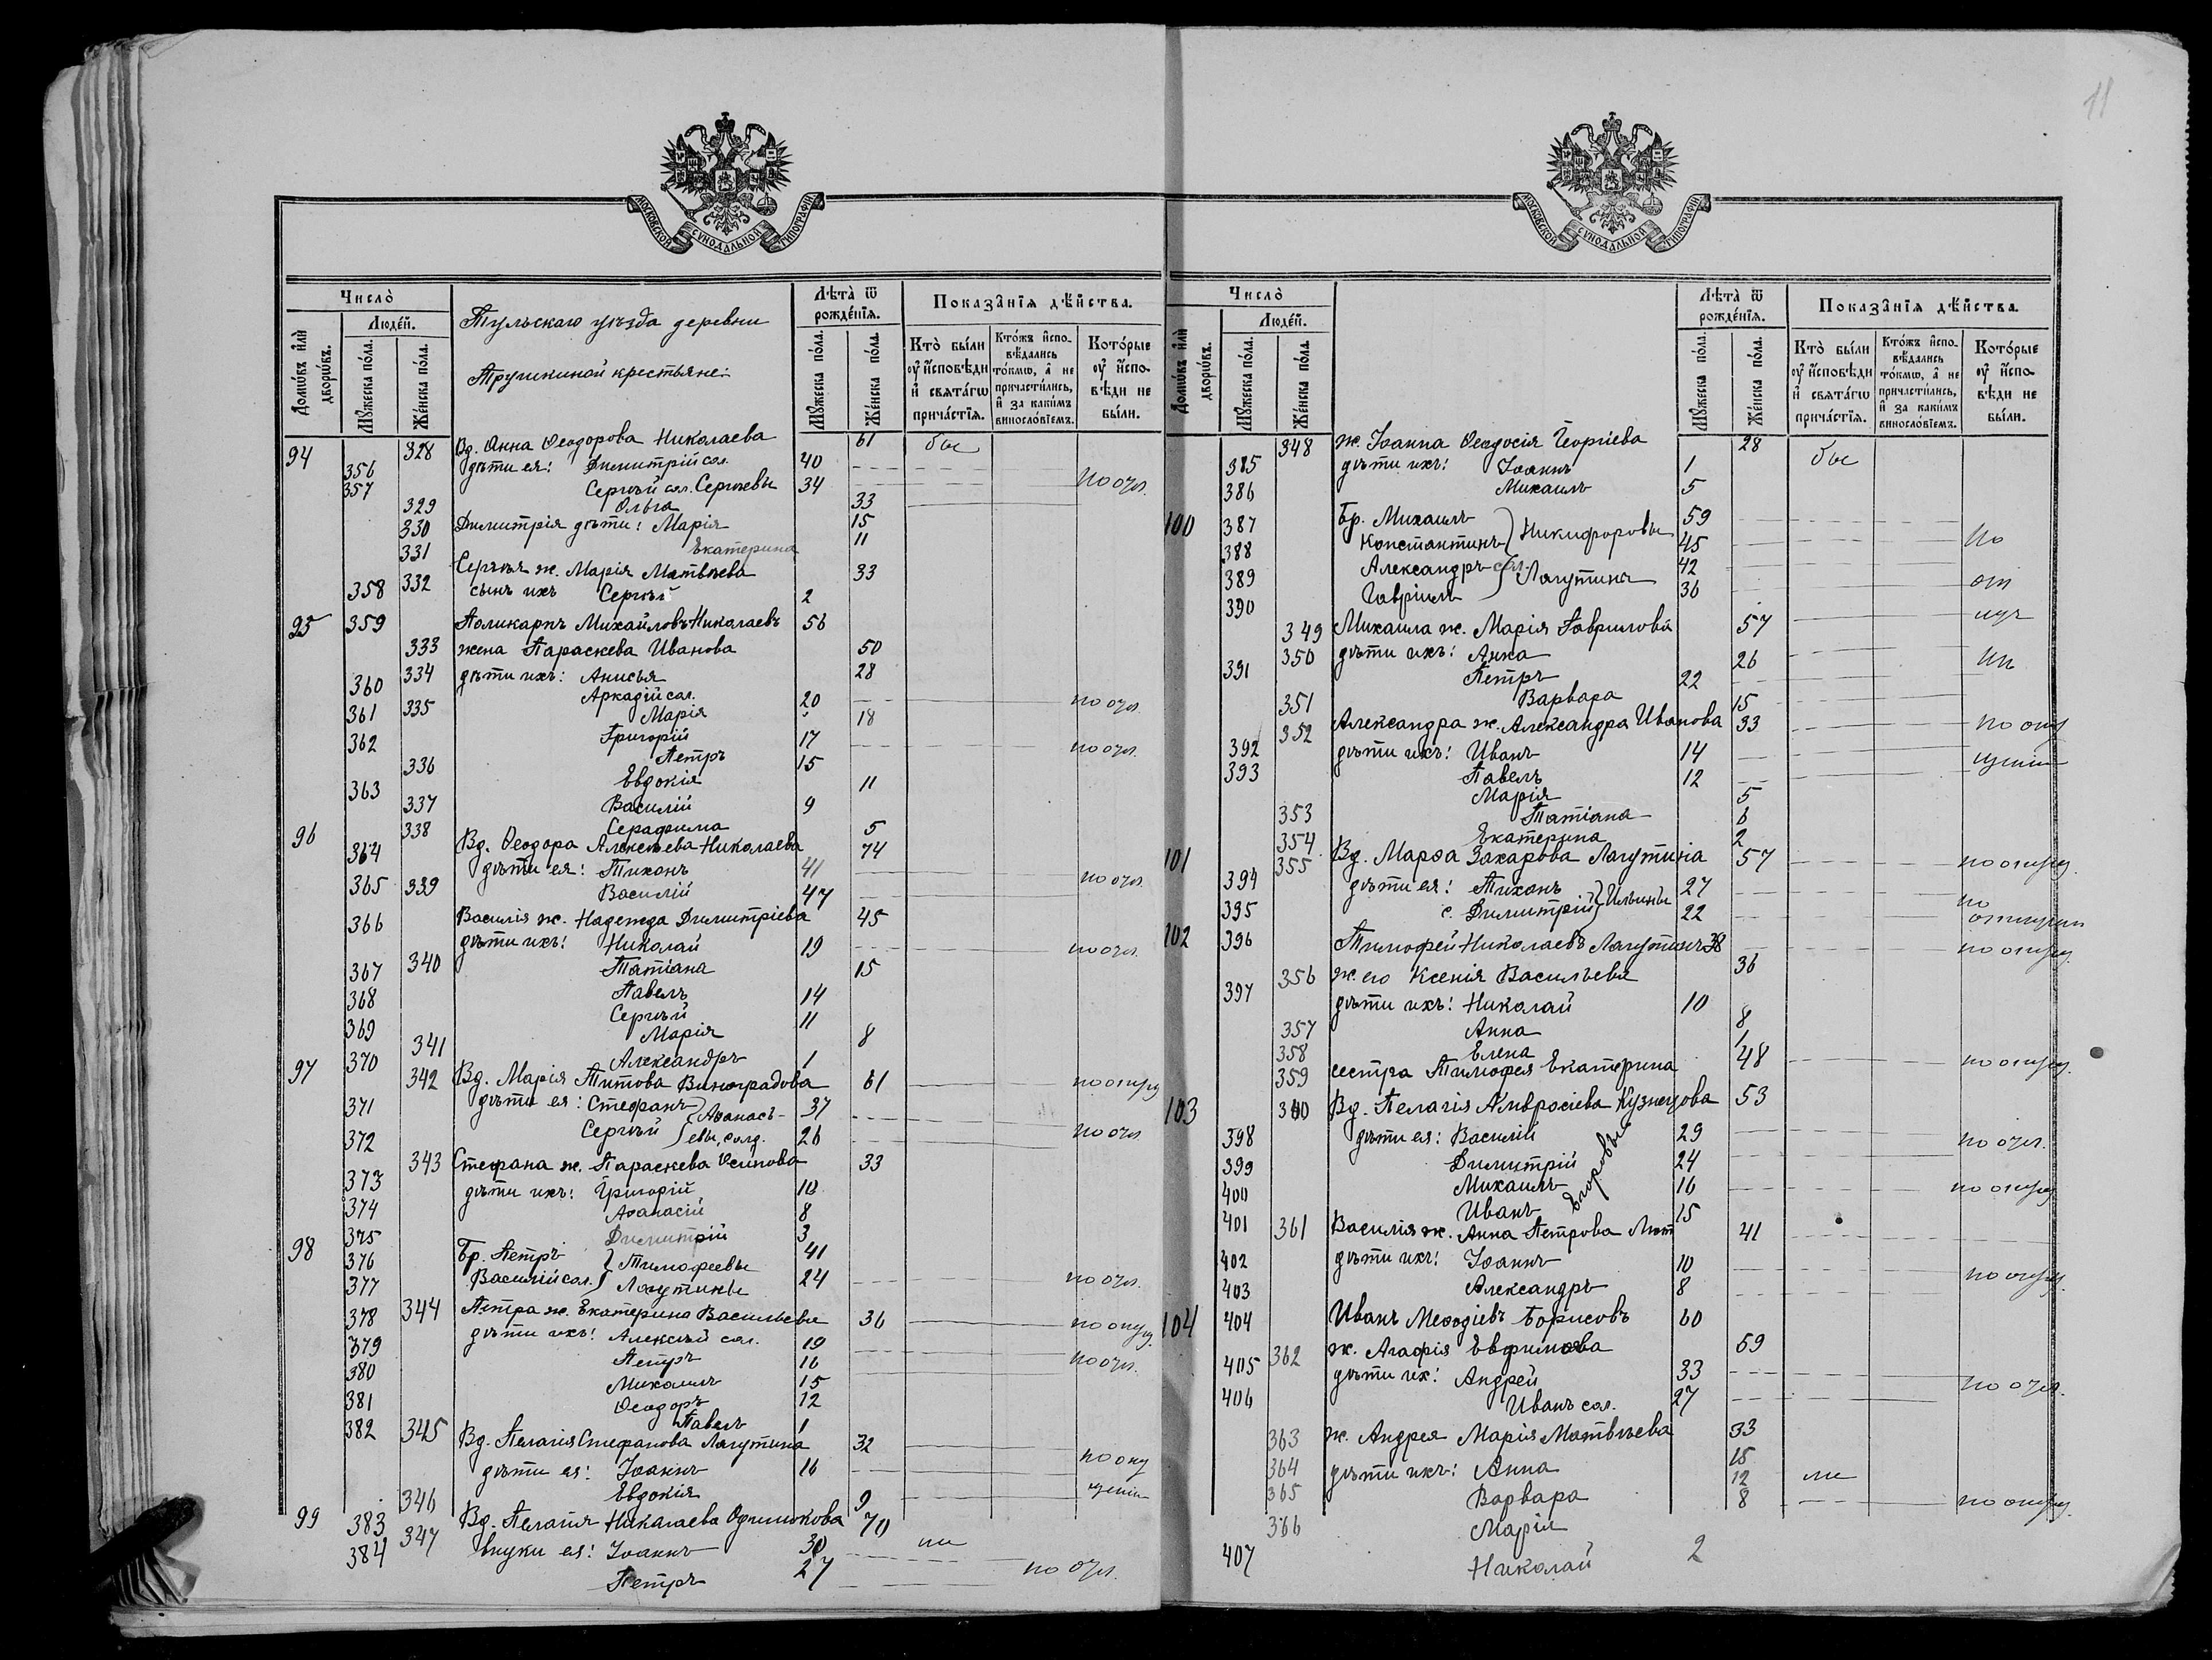 11
МОСКОВСКОЙ СѴНОДАЛЬНОЙ ТИПОГРАФІИ
Число̀
Людє́й.
Домѡ́въ и҆лѝ дворѡ́въ.
Мꙋ́жеска по́ла.
Жéнска по́ла.
Тульскаго уѣзда деревни
Трушкиной крестьяне:
Лѣ́та ѿ рожде́нїѧ.
Мꙋ́жеска по́ла.
Жéнска по́ла.
Показа̑нїѧ дѣ́йства.
Кто̀ бы́ли ᲂу҆ и҆́сповѣди и҆ свѧта́гѡ прича́стїѧ.
Кто́жъ и҆сповѣ́дались то́кмѡ, а҆ не причасти́лись, и҆ за каки́мъ винословїемъ.
Кото́рые ᲂу҆ и҆́сповѣди не бы́ли.
94 328 Вд. Анна Ѳеодорова Николаева 61 бы
356 дѣти ея: Димитрій сол. 40
357 Сергѣй сол. Сергѣевы 34 по отл.
329 Ольга 33
330 Димитрія дѣти: Марія 15
331 Екатерина 11
332 Сергѣя ж. Марія Матвѣева 33
358 сынъ ихъ Сергѣй 2
95 359 Поликарпъ Михайловъ Николаевъ 56
333 жена Параскева Иванова 50
334 дѣти ихъ: Анисья 28
360 Аркадій сол. 20 по отл.
335 Марія 18
361 Григорій 17 по отл.
362 Петръ 15
336 Евдокія 11
363 Василій 9
337 Серафима 5
96 338 Вд. Ѳеодора Алексѣева Николаева 74
364 дѣти ея: Тихонъ 41 по отл.
365 Василій 47
339 Василія ж. Надежда Димитріева 45
366 дѣти ихъ: Николай 19 по отл.
340 Татіана 15
367 Павелъ 14
368 Сергѣй 11
341 Марія 8
369 Александръ 1
97 370 342 Вд. Марія Титова Виноградова 61 по опущ
371 дѣти ея: Стефанъ } Аѳанась- 37
372 Сергѣй } евы, солд. 26 по отл
343 Стефана ж. Параскева Осипова 33
373 дѣти ихъ: Григорій 10
374 Аѳанасій 8
375 Димитрій 3
98 376 Бр. Петръ } Тимофеевы 41
377 Василій сол. } Лагутины 24 по отл.
344 Петра ж. Екатерина Васильева 36 по опущ.
378 дѣти ихъ: Алексѣй сол. 19 по отл.
379 Петръ 16
380 Михаилъ 15
381 Ѳеодоръ 12
382 Павелъ 1
345 Вд. Пелагія Стефанова Лагутина 32
дѣти ея: Іоаннъ 16 по опу
346 Евдокія 9 щенію
99 383 347 Вд. Пелагія Николаева Одинокова 70 ли
384 внуки ея: Іоаннъ 30
Петръ 27 по отл.
МОСКОВСКОЙ СѴНОДАЛЬНОЙ ТИПОГРАФІИ
Число̀
Людє́й.
Домѡ́въ и҆лѝ дворѡ́въ.
Мꙋ́жеска по́ла.
Жéнска по́ла.
Лѣ́та ѿ рожде́нїѧ.
Мꙋ́жеска по́ла.
Жéнска по́ла.
Показа̑нїѧ дѣ́йства.
Кто̀ бы́ли ᲂу҆ и҆́сповѣди и҆ свѧта́гѡ прича́стїѧ.
Кто́жъ и҆сповѣ́дались то́кмѡ, а҆ не причасти́лись, и҆ за каки́мъ винословїемъ.
Кото́рые ᲂу҆ и҆́сповѣди не бы́ли.
348 ж. Іоанна Ѳеодосія Георгіева 28 бы
385 дѣти ихъ: Іоаннъ 1
386 Михаилъ 5
100 387 Бр. Михаилъ } Никифоровы 59
388 Константинъ 45 по
389 Александръ сол. } Лагутины 42
390 Гавріилъ 36 от
349 Михаила ж. Марія Гаврилова 57
350 дѣти ихъ: Анна 26
391 Петръ 22
351 Варвара 15
352 Александра ж. Александра Иванова 33 по опу
392 дѣти ихъ: Иванъ 14 щенію
393 Павелъ 12
Марія 5
353 Татіана 6
354 Екатерина 2
101 355 Вд. Марѳа Захарова Лагутина 57 по опущ.
394 дѣти ея: Тихонъ } Ильины 27 по
395 с. Димитрій 22
102 396 Тимофей Николаевъ Лагутинъ 38 по опущ.
356 ж. его Ксенія Васильева 36
397 дѣти ихъ: Николай 10
357 Анна 8
358 Елена 1
359 сестра Тимофея Екатерина 48 по опущ.
103 360 Вд. Пелагія Амвросіева Кузнецова 53
398 дѣти ея: Василій 29 по отл.
399 Димитрій 24
400 Михаилъ 16 по опущ
401 Иванъ 15
Егоровы
361 Василія ж. Анна Петрова 41
402 дѣти ихъ: Іоаннъ 10 по опущ.
403 Александръ 8
104 404 Иванъ Меѳодіевъ Борисовъ 60
362 ж. Агафія Евфимова 59
405 дѣти их: Андрей 33 по отл.
406 Иванъ сол. 27
363 ж. Андрея Марія Матвѣева 33
364 дѣти ихъ: Анна 15
365 Варвара 12 ли
366 Марія 8 по опущ.
407 Николай 2